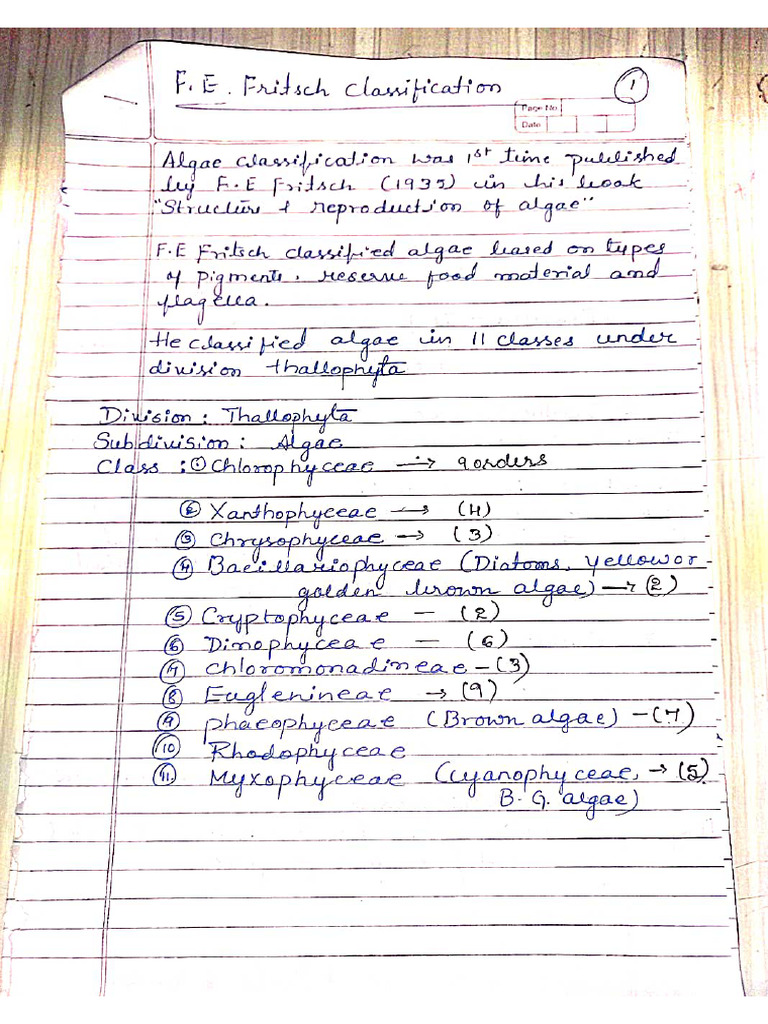 F. E. Fritsch Classification
1
Page No
Date
Algae classification was 1st time published
by F.E Fritsch (1935) in his book
"Structure & reproduction of algae"
F.E Fritsch classified algae based on types
of pigments, reserve food material and
flagella.
He classified algae in 11 classes under
division thallophyta
Division : Thallophyta
Subdivision : Algae
Class : ① Chlorophyceae → 9 orders
② Xanthophyceae → (4)
③ Chrysophyceae → (3)
④ Bacillariophyceae (Diatoms, yellow or
golden brown algae) → (2)
⑤ Cryptophyceae – (2)
⑥ Dinophyceae – (6)
⑦ Chloromonadineae – (3)
⑧ Euglenineae → (9)
⑨ Phaeophyceae (Brown algae) – (7)
⑩ Rhodophyceae
⑪ Myxophyceae (Cyanophyceae, → (5)
B. G. algae)